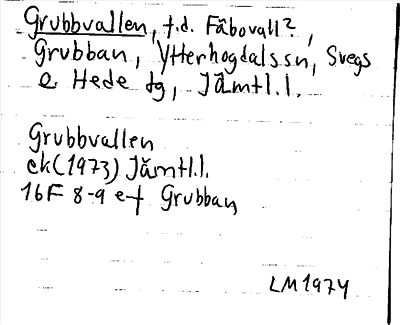 Grubbvallen, f.d. Fäbovall?,
Grubban, Ytterhogdals sn, Svegs
o Hede tg, Jämtl.l.
Grubbvallen
ek (1973) Jämtl.l.
16F 8-9 e-f Grubban
LM 1974